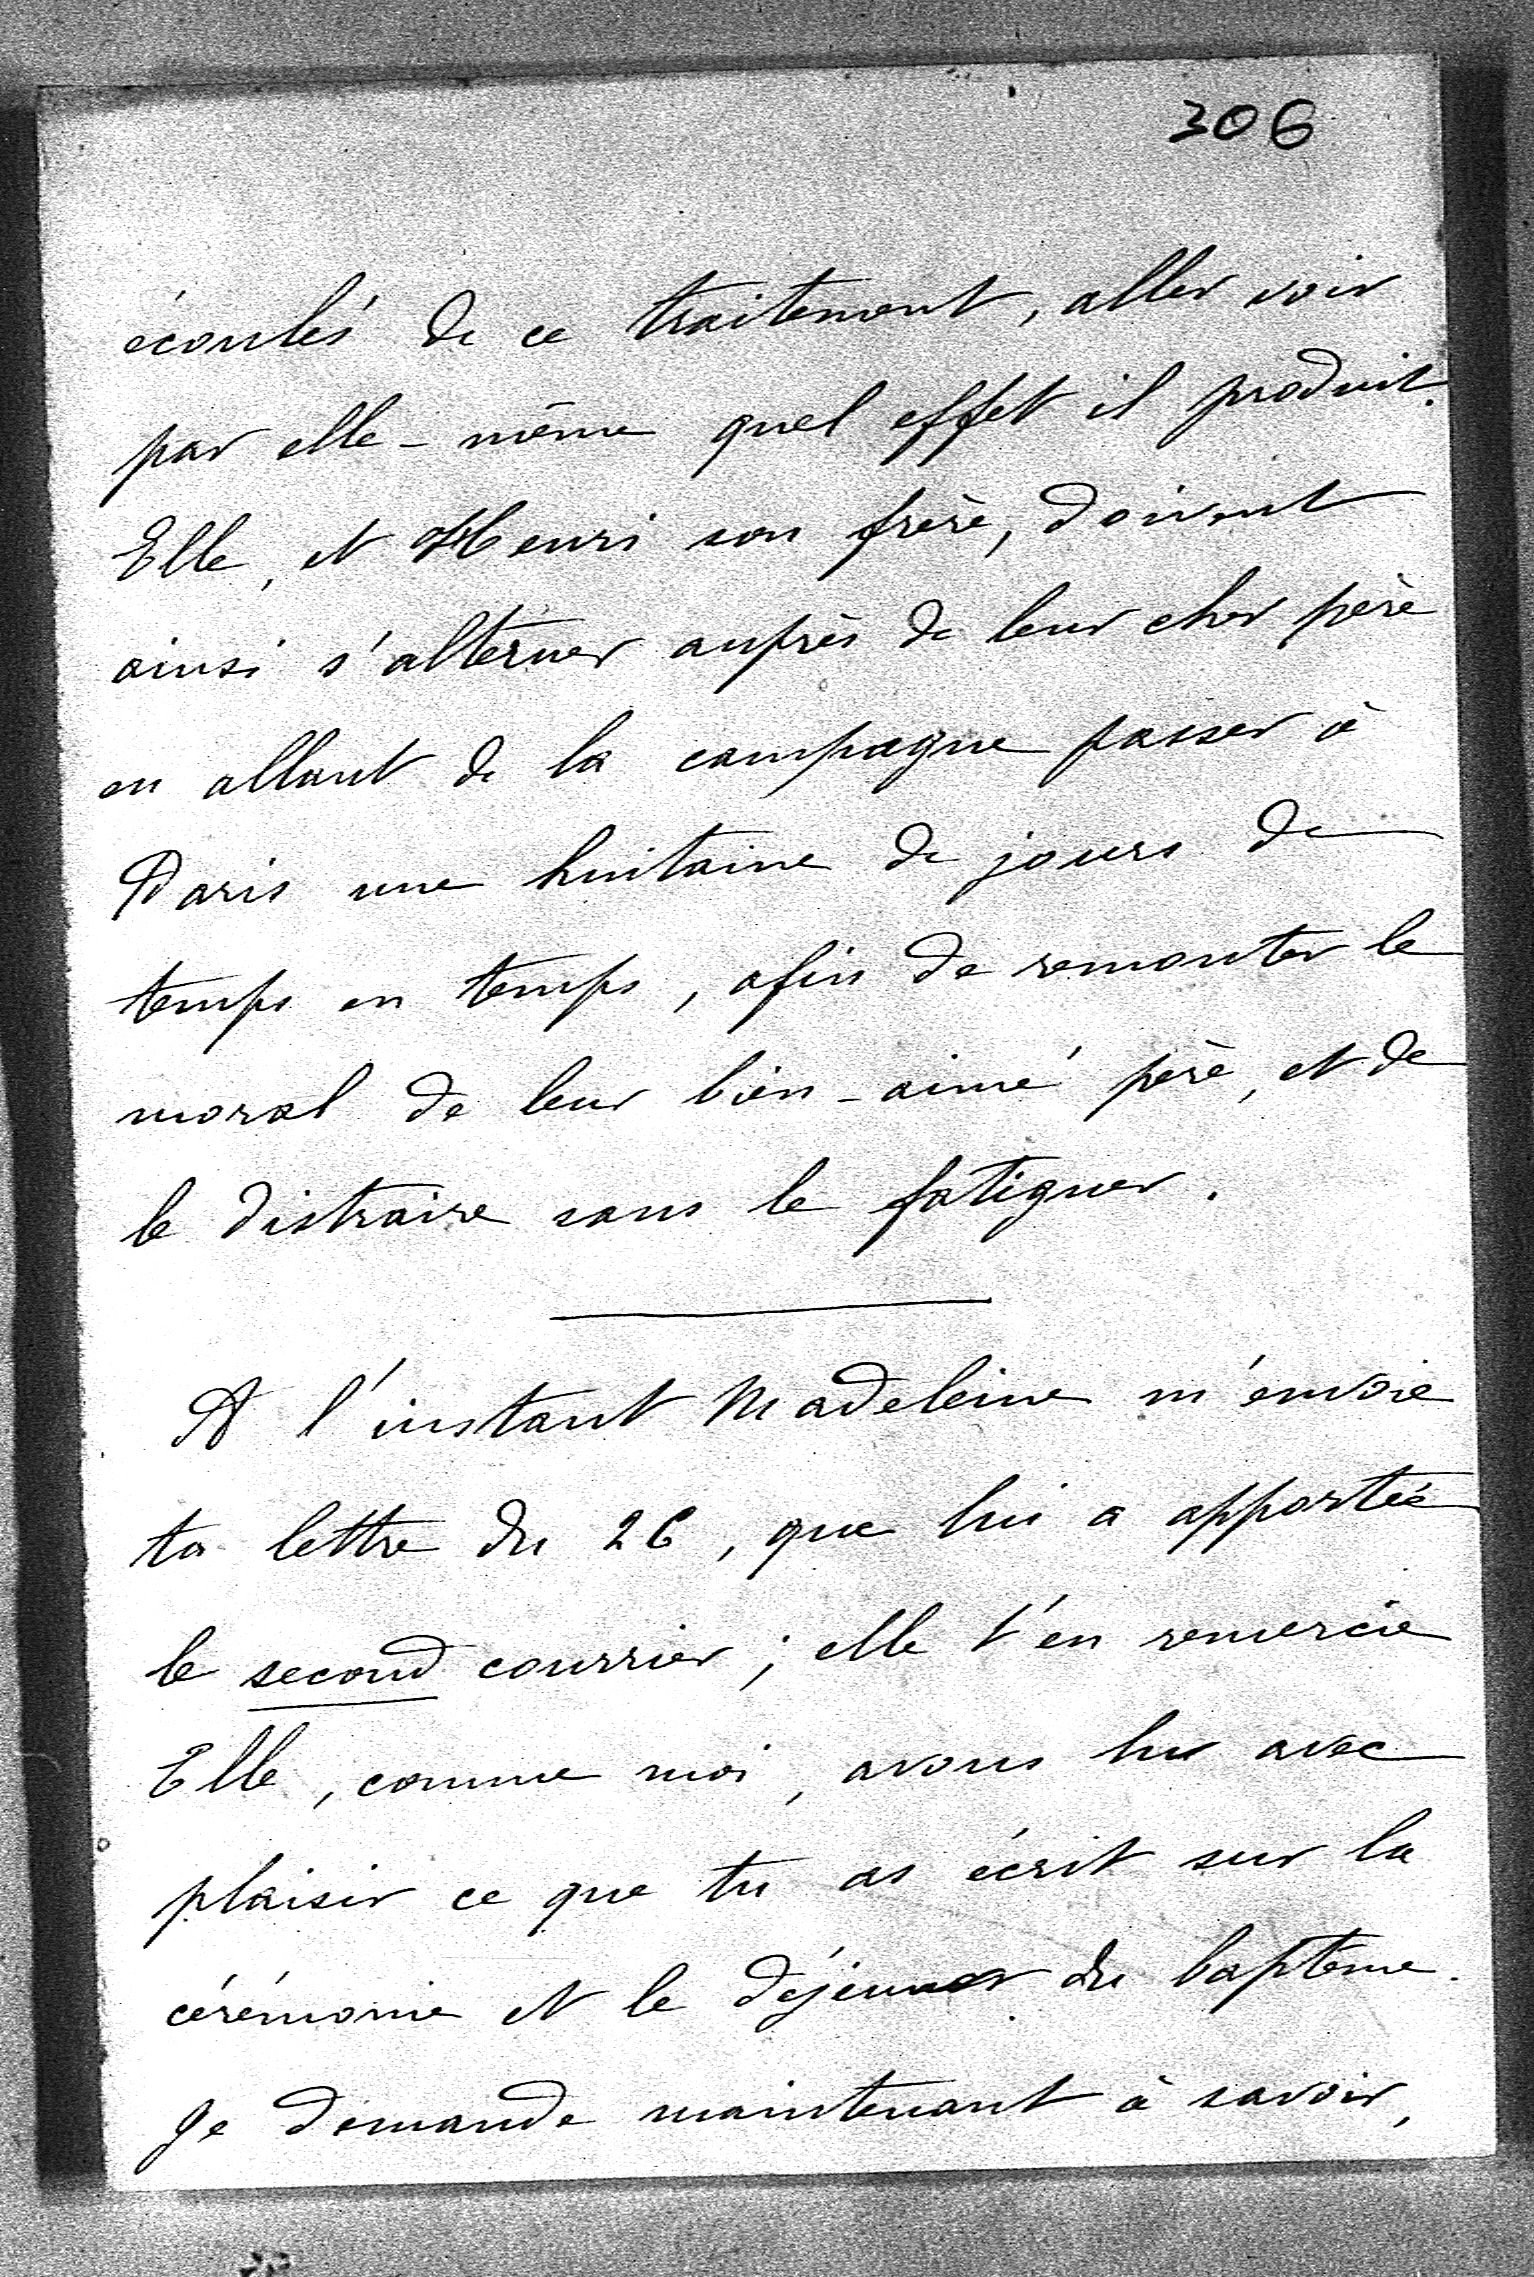 306
écoulés de ce traitement, aller voir
par elle-même quel effet il produit.
Elle, et Henri son frère, doivent
ainsi s'alterner auprès de leur cher père
en allant de la campagne passer à
Paris une huitaine de jours de
temps en temps, afin de remonter le
moral de leur bien-aimé père, et de
le distraire sans le fatiguer.
A l'instant Madeleine m'envoie
ta lettre du 26, que lui a apportée
le second courrier; elle t'en remercie
Elle, comme moi, avons lu avec
plaisir ce que tu as écrit sur la
cérémonie et le déjeuner du baptême.
Je demande maintenant à savoir,